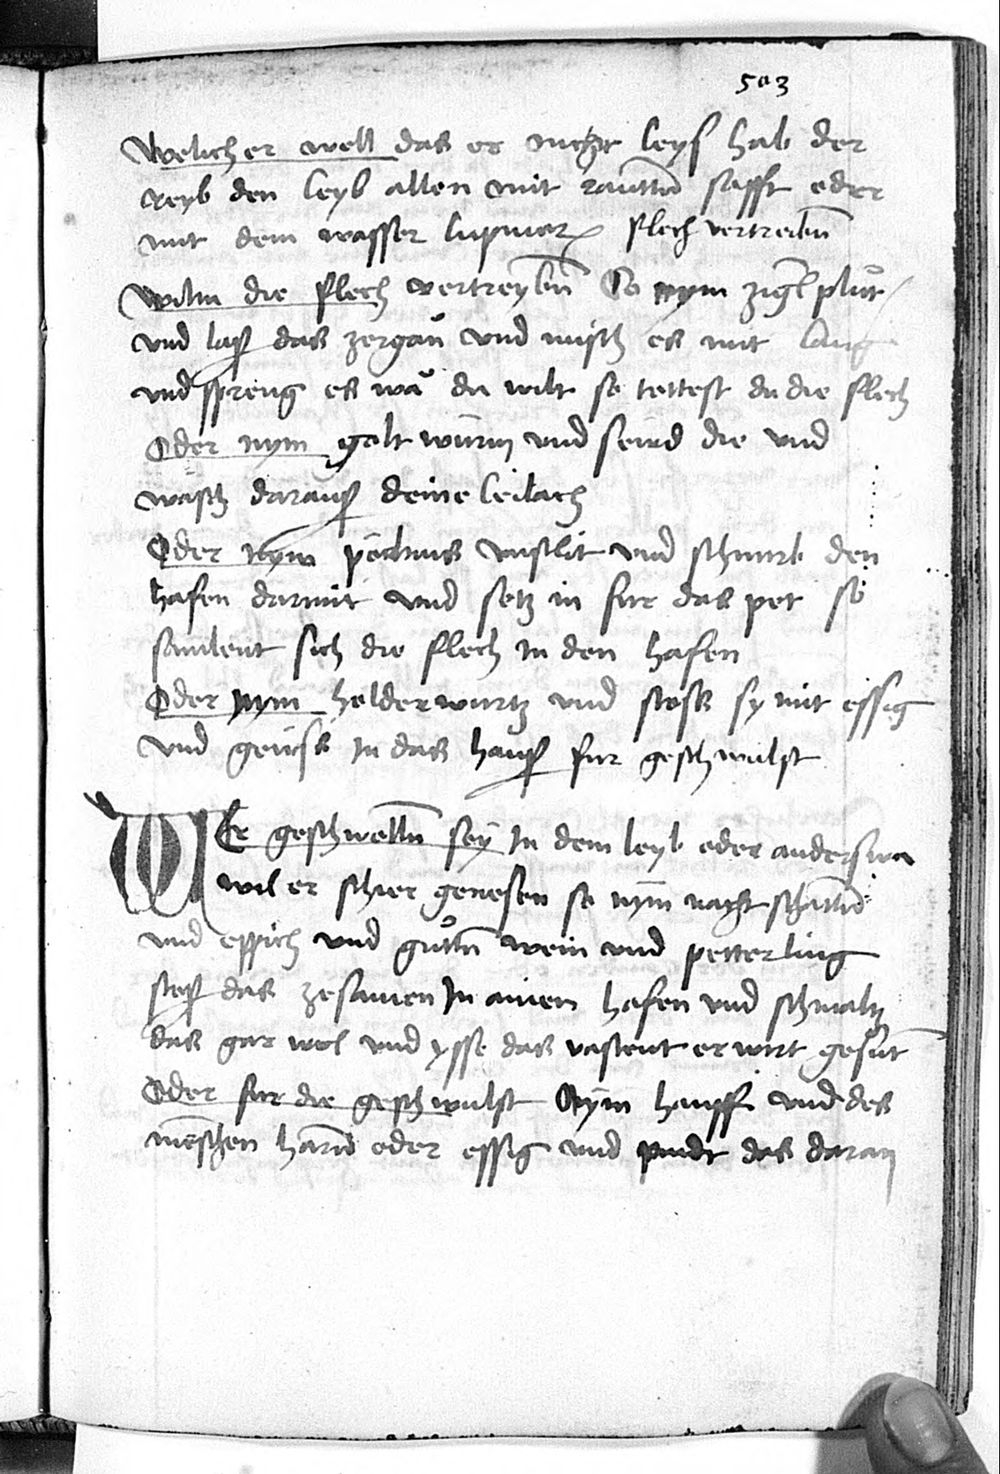 503
Welicher well das er nicht leyß hab der
reyb den leyb allen mit rauttn̄ safft oder
mit dem wasser lupinor flech vertreibn̄
Wiltu die flech vertreybn̄ So nym zigēl plůt
und laß das zergan̄ und misch es mit laug
und spreng es wa du wilt so tettest du die flech
Oder nym golt wurm̄ und seud die und
wasch darauß deine leilach
Oder nym̄ pockinns unslit und schmirb den
hafen darmit und setz in fur das pet so
samlent sich die flech in den hafen
Oder nym holderwurtz und stoß sy mit essig
und geuß in das hauß fur geschwulst
WEr geschwelln̄ sey in dem leyb oder anderswa
wil er schier genesen so nym̄ nachtschattn̄
und eppich und gůttn̄ wein und petterling
stoß das zesamen in ainem hafen und schmaltz
das gar wol und ysse das vastent er wirt gesūt
Oder fur die geschwulst Nym̄ hanpff und des
menschen harn̄ oder essig und pindt das daran